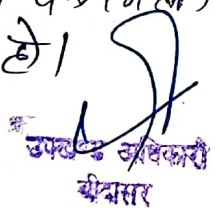 हो।
उपखण्ड अधिकारी
बीदासर